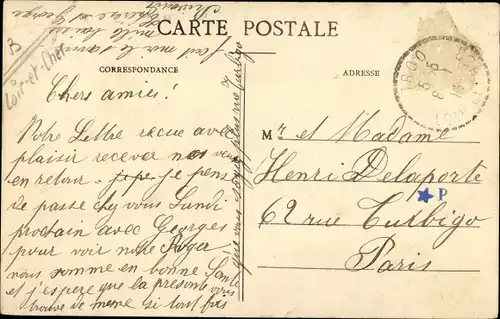 B
Loir-et-Cher
CARTE POSTALE
CORRESPONDANCE
ADRESSE
Chers amies!
Votre Lettre recue avec
plaisir recever nos vœux
en retour - je pens
de passe chez vous Lundi
prochain avec Georges
pour voir notre Roger
nous somme en bonne Santé
et j'espeze que la presente vous
trouve de meme si tout fois
que vous
rue Turbigo
Mr et Madame
Henri Delaporte
62 rue Turbigo
Paris
P